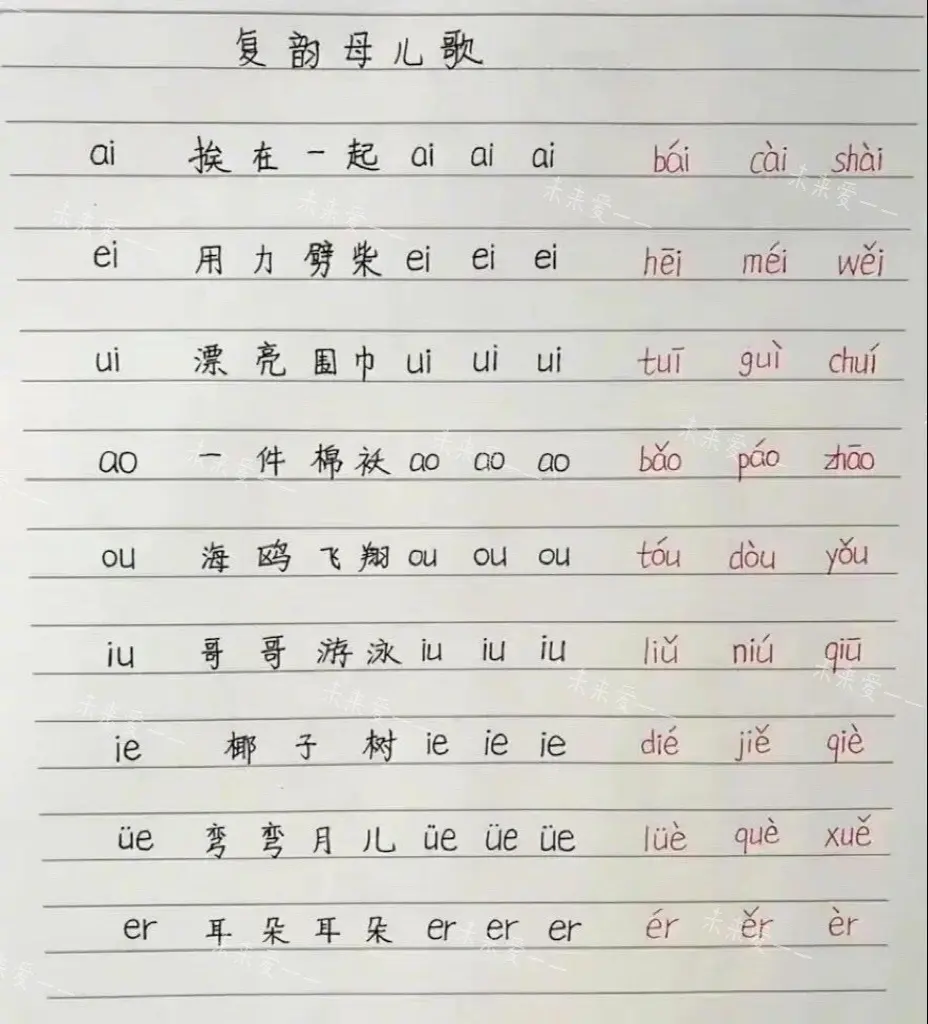 复韵母儿歌
ai 挨在一起 ai ai ai bái cài shài
ei 用力劈柴 ei ei ei hēi méi wěi
ui 漂亮围巾 ui ui ui tuī guì chuí
ao 一件棉袄 ao ao ao bǎo páo zhāo
ou 海鸥飞翔 ou ou ou tóu dòu yǒu
iu 哥哥游泳 iu iu iu liǔ niú qiū
ie 椰子树 ie ie ie dié jiě qiè
üe 弯弯月儿 üe üe üe lüè què xuě
er 耳朵耳朵 er er er ér ěr èr
未来爱一一